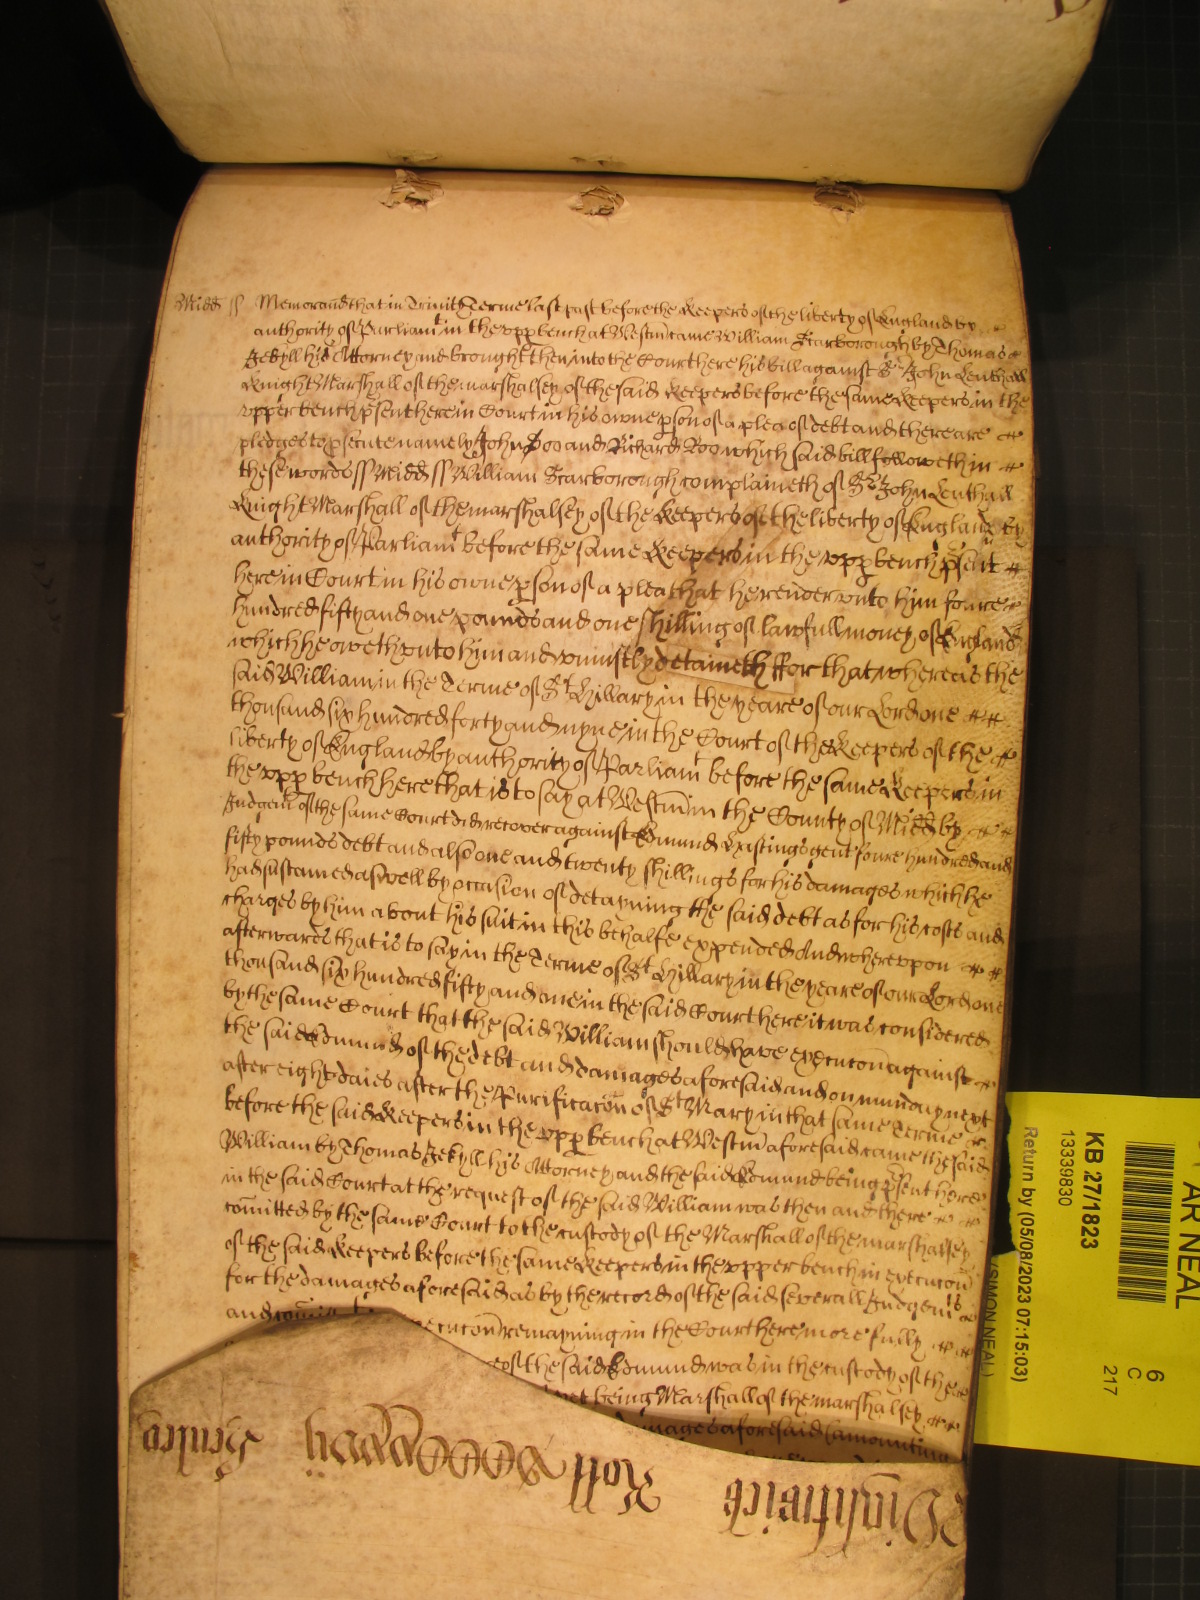 Midd ss Memorand that in Trinity Terme last past before the Keepers of the liberty of England by
authority of Parliamt in the upp bench at Westm came William Scarborough by Thomas
Jekyll his Attorney and brought then into the Court here his bill against Sr John Lenthall
Knight Marshall of the marshalsey of the said Keepers before the same Keepers in the
upper bench psent here in Court in his owne pson of a plea of debt and there are
pledges to psecute namely John Doo and Richard Roo which said bill followeth in
these words ss Midd ss William Scarborough complaineth of Sr John Lenthall
Knight Marshall of the marshalsey of the Keepers of the liberty of England by
authority of Parliamt before the same Keepers in the upp bench psent
here in Court in his owne pson of a plea that he render unto him foure
hundred fifty and one pounds and one shilling of lawfull money of England
which he oweth unto him and uniustly detaineth ffor that whereas the
said William in the Terme of St Hillary in the yeare of our Lord one
thousand six hundred forty and nyne in the Court of the Keepers of the
liberty of England by authority of Parliamt before the same Keepers in
the upp bench here that is to say at Westm in the County of Midd by
Judgemt of the same Court did recover against Edmund Hastings gent foure hundred and
fifty pounds debt and also one and twenty shillings for his damages which he
had sustained aswell by occasion of detayning the said debt as for his costs and
charges by him about his suit in this behalfe expended And whereupon
afterwards that is to say in the Terme of St Hillary in the yeare of our Lord one
thousand six hundred fifty and one in the said Court here it was considered
by the same Court that the said William should have execucon against
the said Edmund of the debt and damages aforesaid and on munday next
after eight daies after the Purificacon of St Mary in that same Terme
before the said Keepers in the upp bench at Westm aforesaid came the said
William by Thomas Jekyll his Attorney and the said Edmund being psent here
in the said Court at the request of the said William was then and there
comitted by the same Court to the custody of the Marshall of the marshalsey
of the said Keepers before the same Keepers in the upper bench in execucon
for the damages aforesaid as by the record of the said severall Judgemts
and execucon remayning in the Court here more fully
of the said Edmund was in the custody of the
yet being Marshall of the marshalsey
damages aforesaid (amounting
Roll
KB 27/1823
13339830
Return by (05/08/2023 07:15:03)
(SIMON NEAL)
AR NEAL
6
C
217